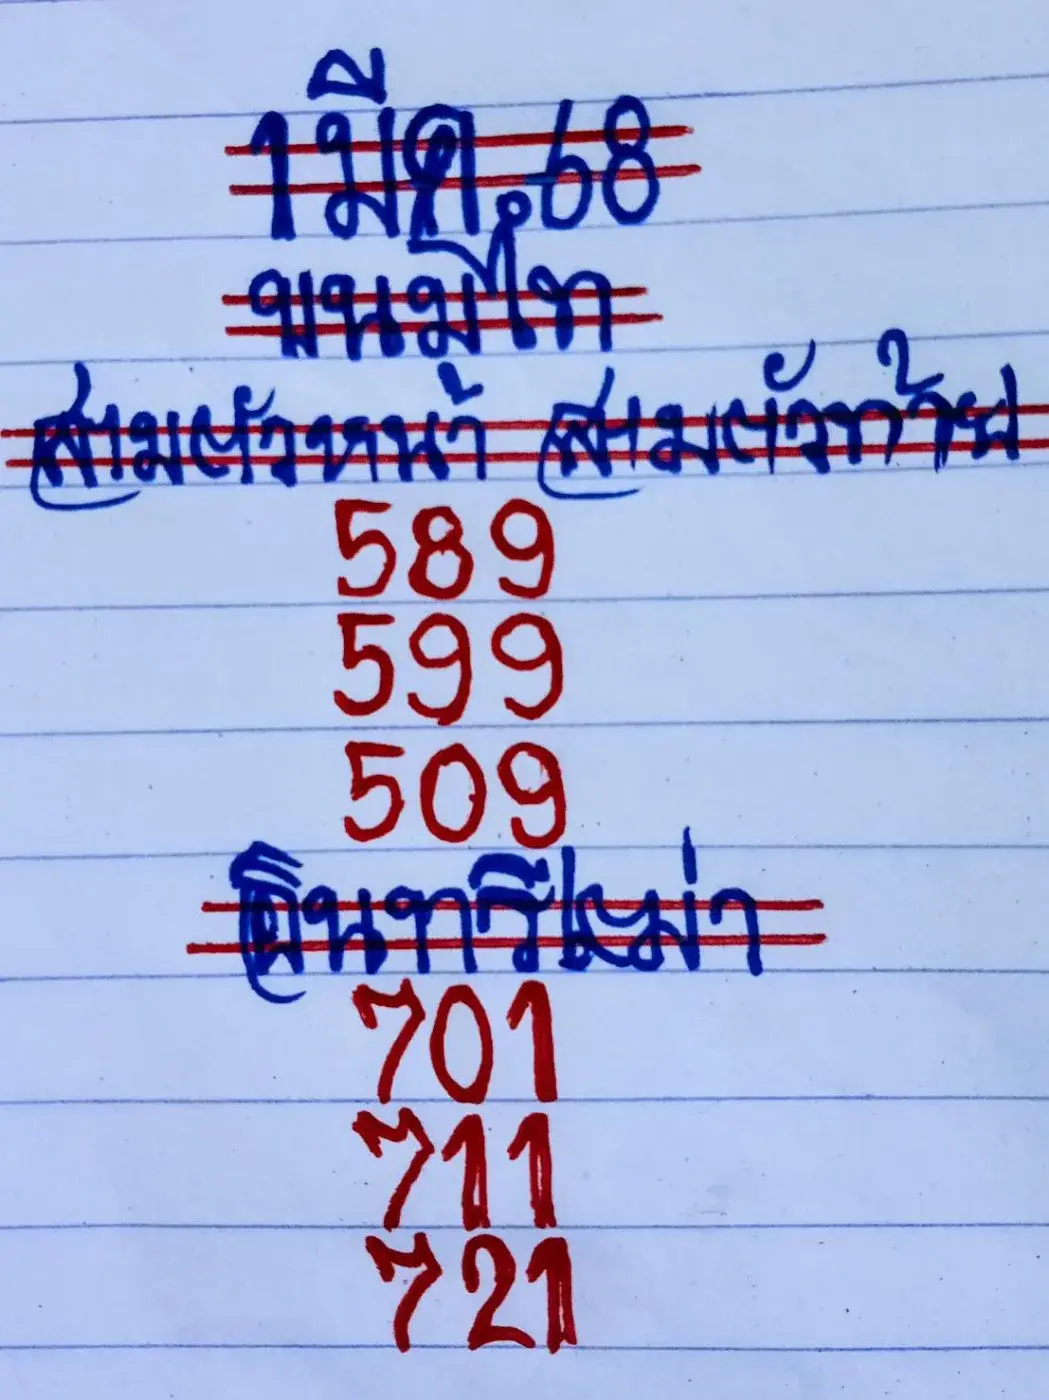 1 มีค. 68
พนมไท
สามตัวหน้า สามตัวท้าย
589
599
509
อินทรีเฒ่า
701
711
721